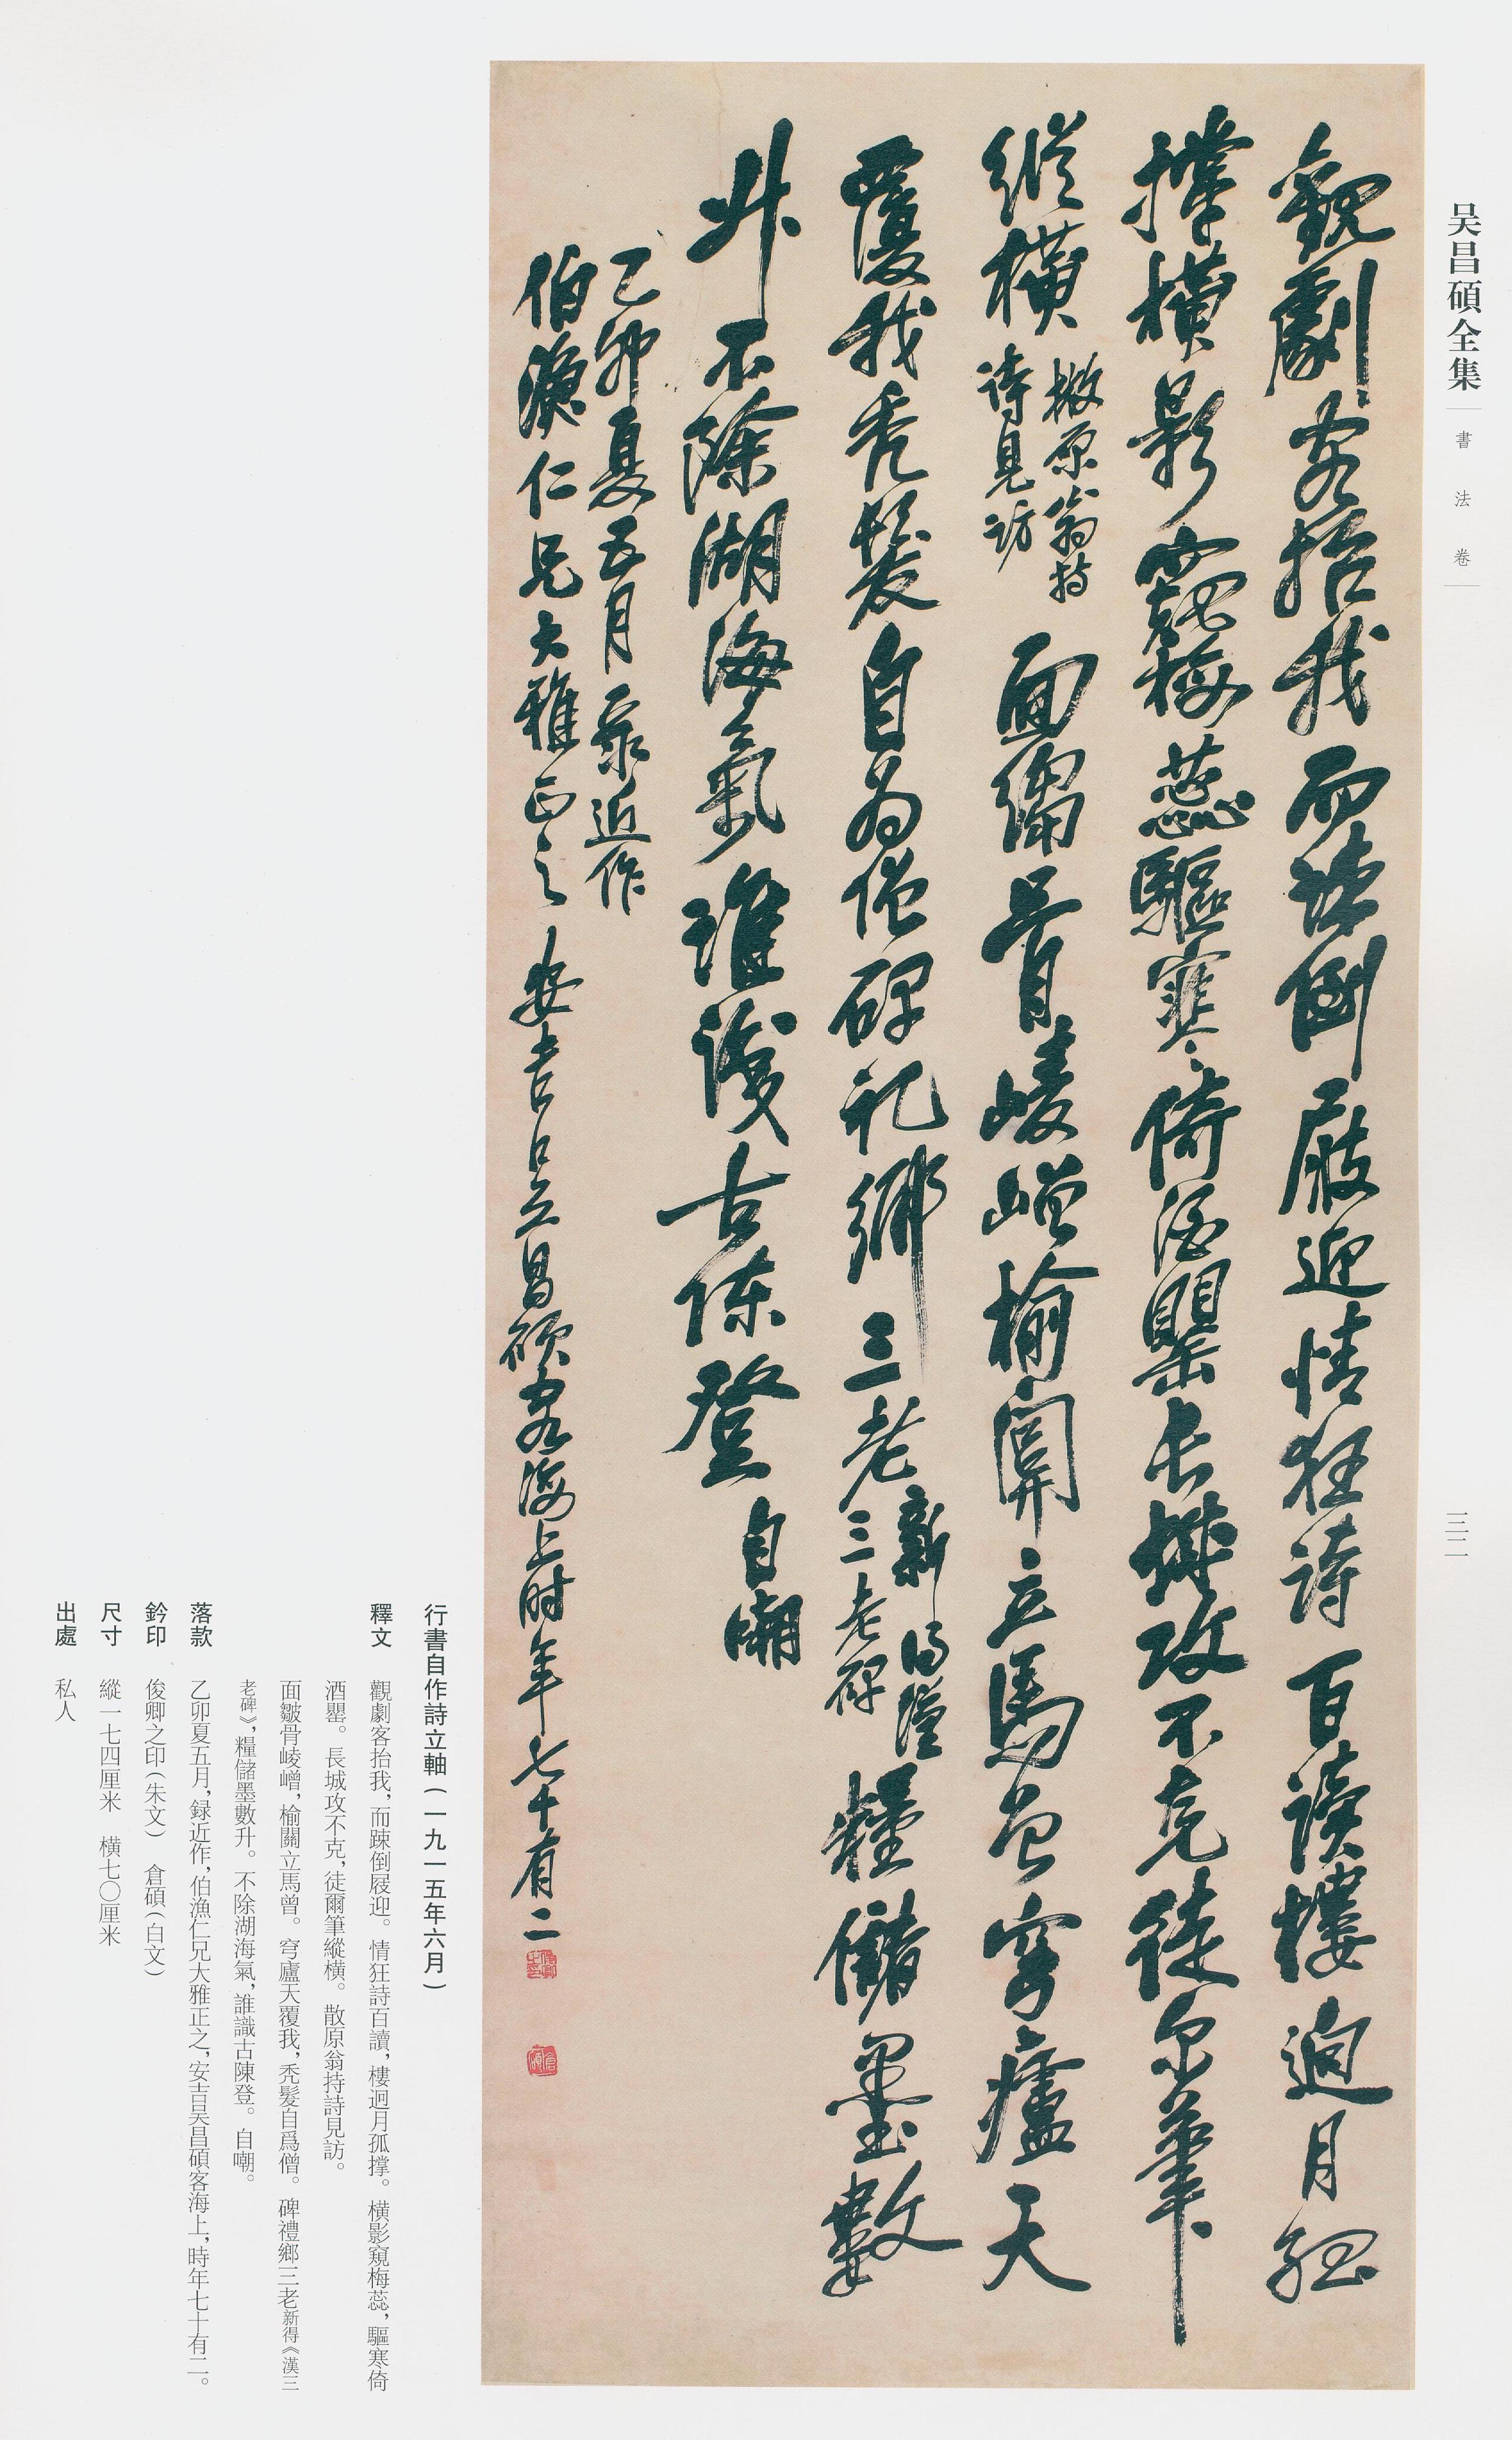 吴昌碩全集
書法卷
三二
觀劇客抬我而踈倒屐迎情狂詩百讀樓迥月孤
撐橫影窺梅蕊驅寒倚酒罌長城攻不克徒尔筆
縱橫
散原翁持
詩見訪
面皺骨崚嶒榆關立馬曾穹廬天
覆我禿髮自為僧碑礼鄉三老
新得漢
三老碑
糧儲墨數
升不除湖海氣誰識古陳登
自嘲
乙卯夏五月录近作
伯漁仁兄大雅正之安吉吳昌碩客海上时年七十有二
行書自作詩立軸(一九一五年六月)
釋文 觀劇客抬我,而踈倒屐迎。情狂詩百讀,樓迥月孤撐。橫影窺梅蕊,驅寒倚
酒罌。長城攻不克,徒爾筆縱橫。散原翁持詩見訪。
面皺骨崚嶒,榆關立馬曾。穹廬天覆我,禿髮自爲僧。碑禮鄉三老新得《漢三
老碑》,糧儲墨數升。不除湖海氣,誰識古陳登。自嘲。
落款 乙卯夏五月,録近作,伯漁仁兄大雅正之,安吉吴昌碩客海上,時年七十有二。
鈐印 俊卿之印(朱文) 倉碩(白文)
尺寸 縱一七四厘米 橫七〇厘米
出處 私人